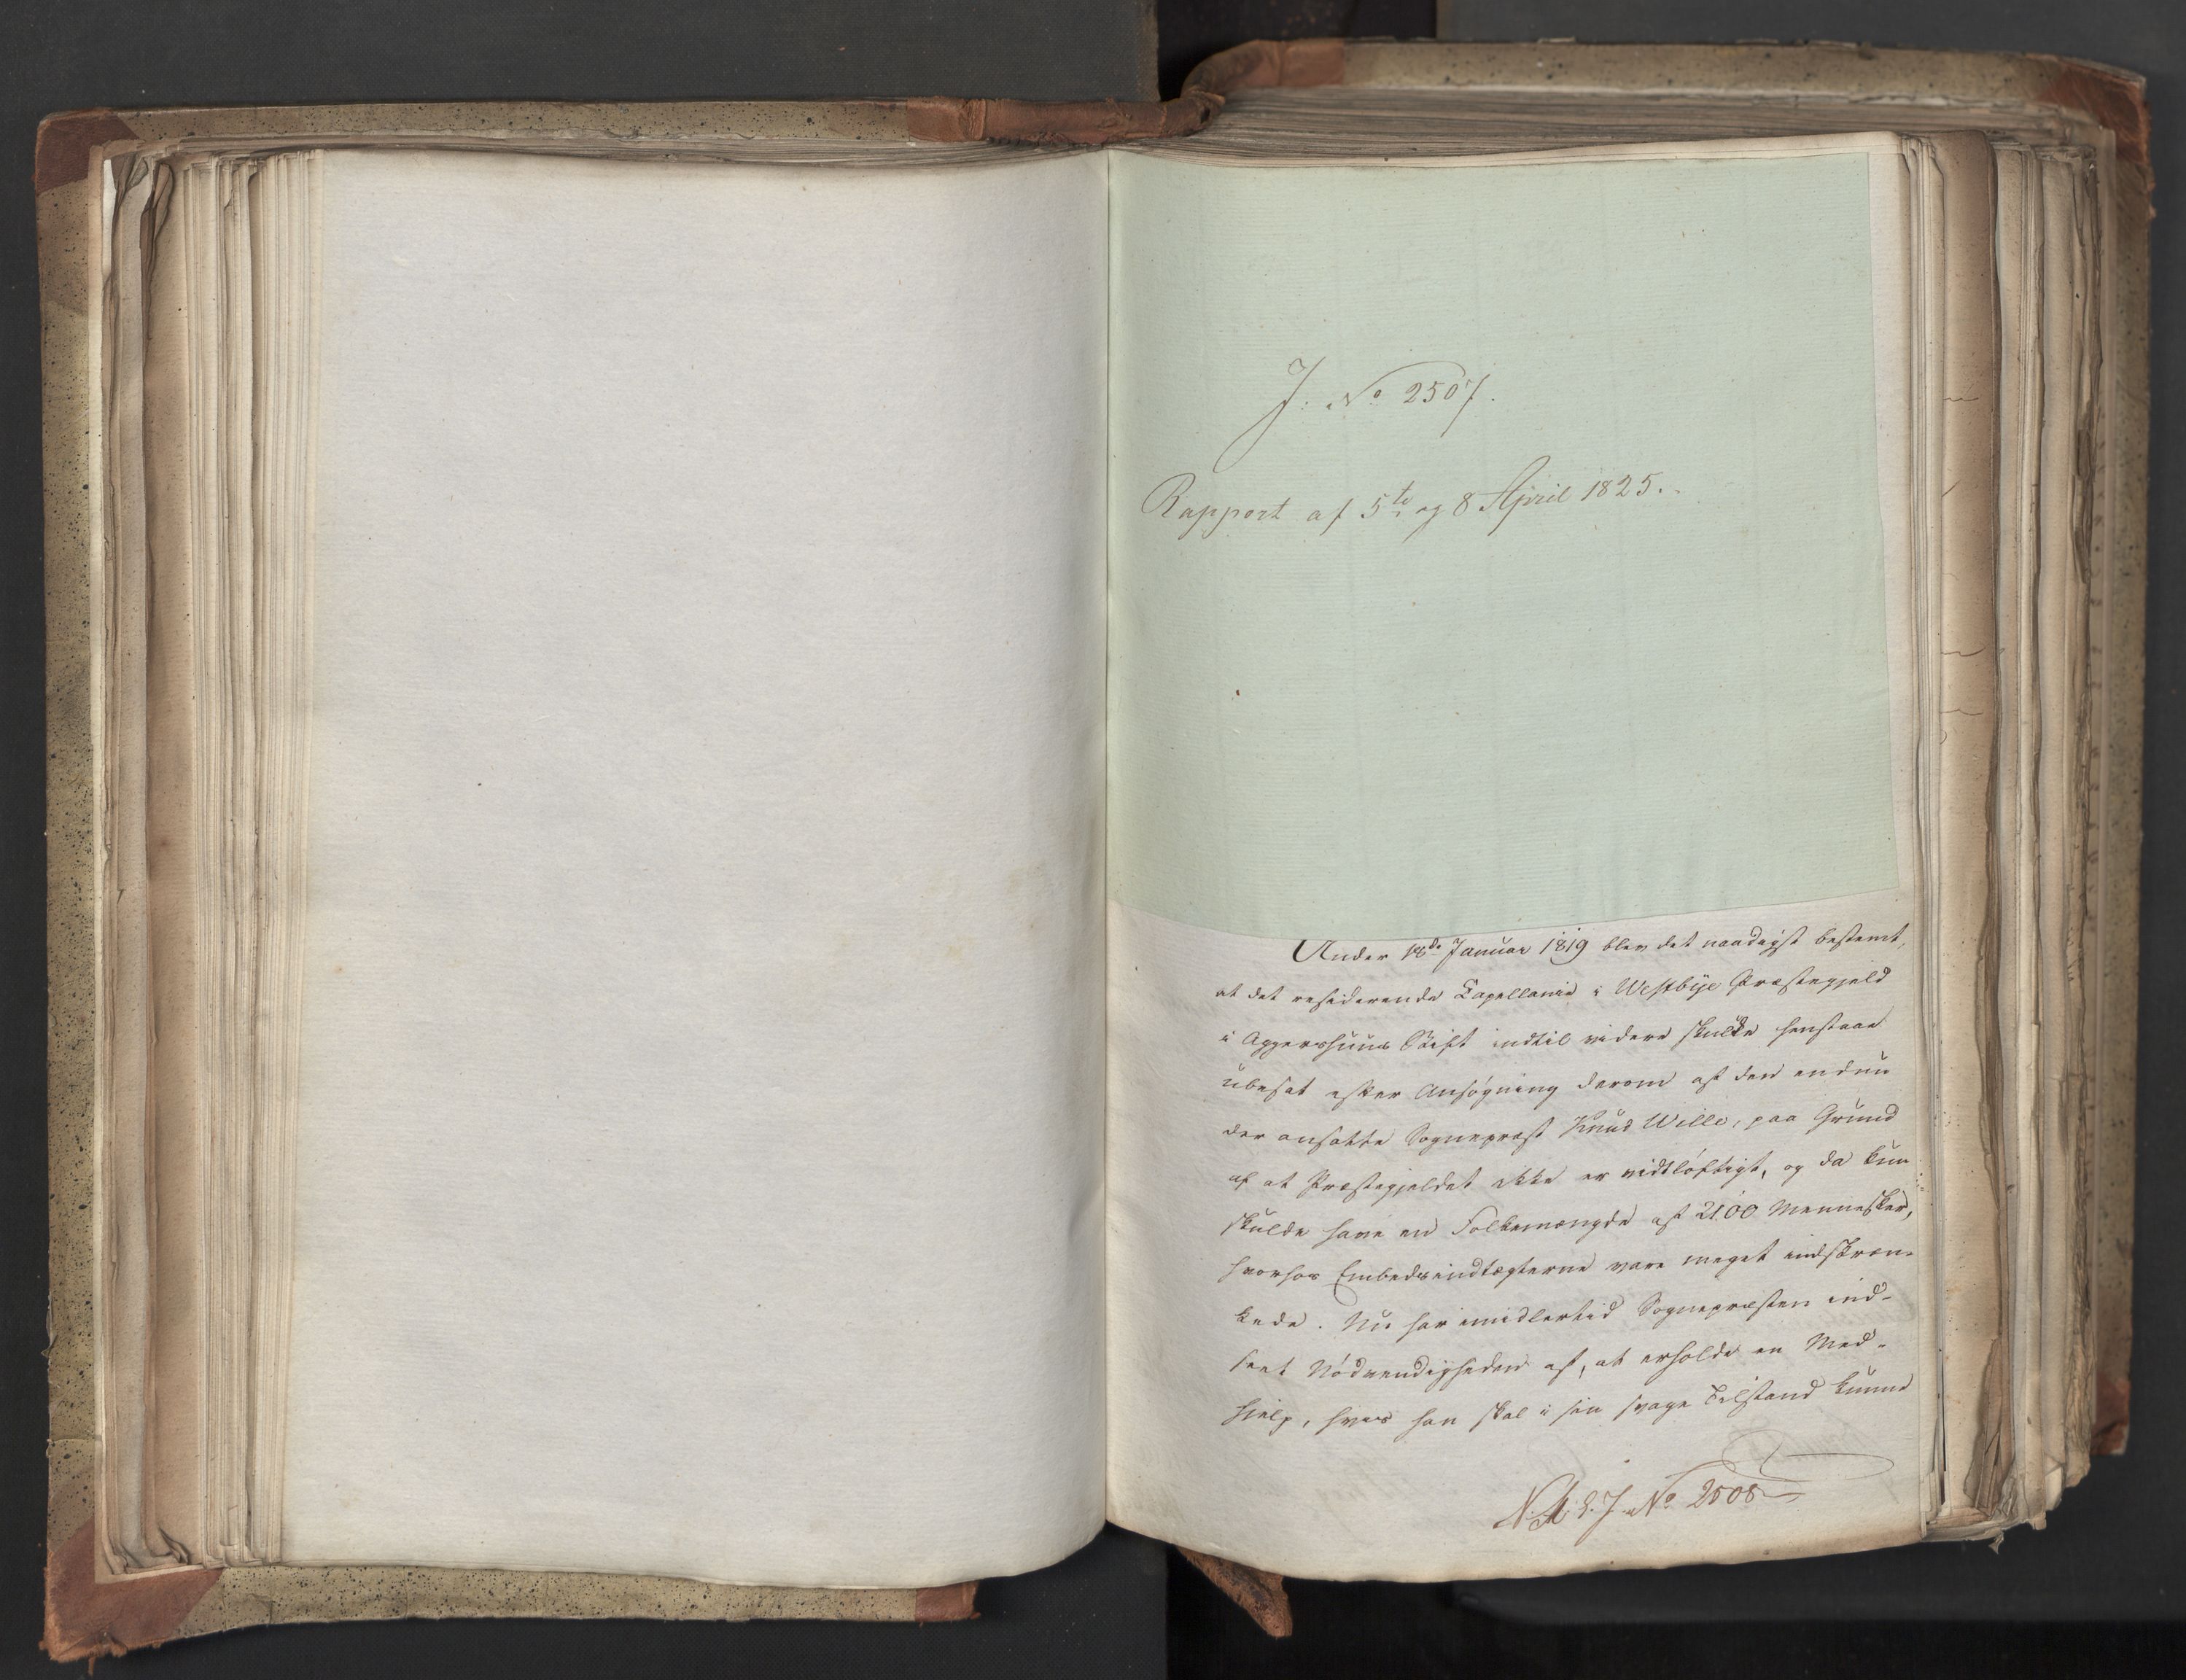 J. No 2507.
Rapport af 5te og 8 April 1825.
Under 18de Januar 1819 blev det naadigst bestemt,
at det residerende Capellanie i Westbye Præstegjeld
i Aggershuus Stift indtil videre skulde henstaae
ubesat efter Ansøgning derom af den endnu
der ansatte Sognepræst Knud Wille, paa Grund
af at Præstegjeldet ikke er vidtløftigt, og da kun
skulde have en Folkemængde af 2100 Mennesker,
hvorhos Embedsindtægterne vare meget indskræn-
kede. Nu har imidlertid Sognepræsten ind-
seet Nødvendigheden af, at erholde en Med-
hjelp, hvis han skal i sin svage Tilstand kunne
J. No 2508